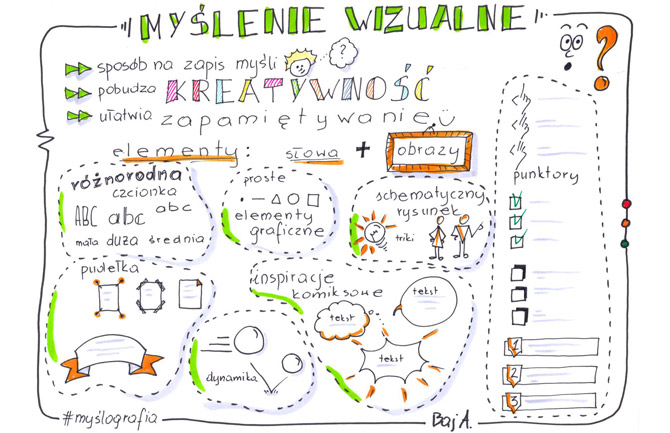 MYŚLENIE WIZUALNE
sposób na zapis myśli
?
?
pobudza KREATYWNOŚĆ
ułatwia zapamiętywanie
elementy: słowa + obrazy
punktory
różnorodna
czcionka
ABC abc abc
mała duża średnia
proste
elementy
graficzne
schematyczny
rysunek
triki
pudełka
inspiracje
komiksowe
tekst
tekst
tekst
dynamika
1
2
3
#myślografia
Baj A.